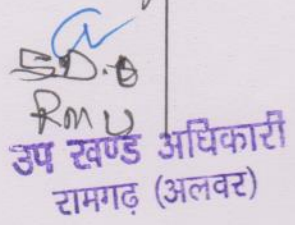 S.D.O
RMU
उप खण्ड अधिकारी
रामगढ़ (अलवर)